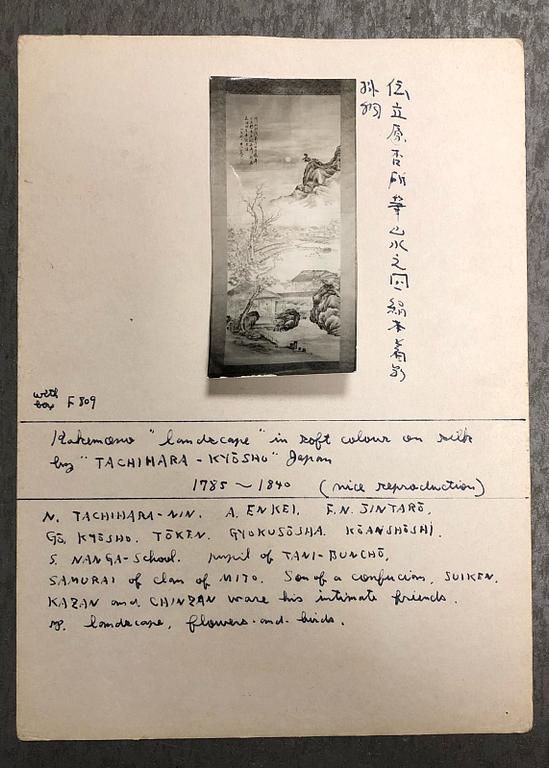 伝立原杏所筆山水之図絹本着彩
掛物
with
box F 809
Kakemono "landscape" in soft colour on silk
by "TACHIHARA - KYŌSHO" Japan
1785 ~ 1840 (nice reproduction)
N. TACHIHARA-NIN. A. ENKEI. F.N. JINTARŌ.
Gō. KYŌSHO. TŌKEN. GYOKUSŌSHA. KŌANSHŌSHI.
S. NANGA-School. pupil of TANI-BUNCHŌ,
SAMURAI of clan of MITO. Son of a confucian, SUIKEN.
KAZAN and CHINZAN ware his intimate friends.
sp. landscape, flowers-and-birds.